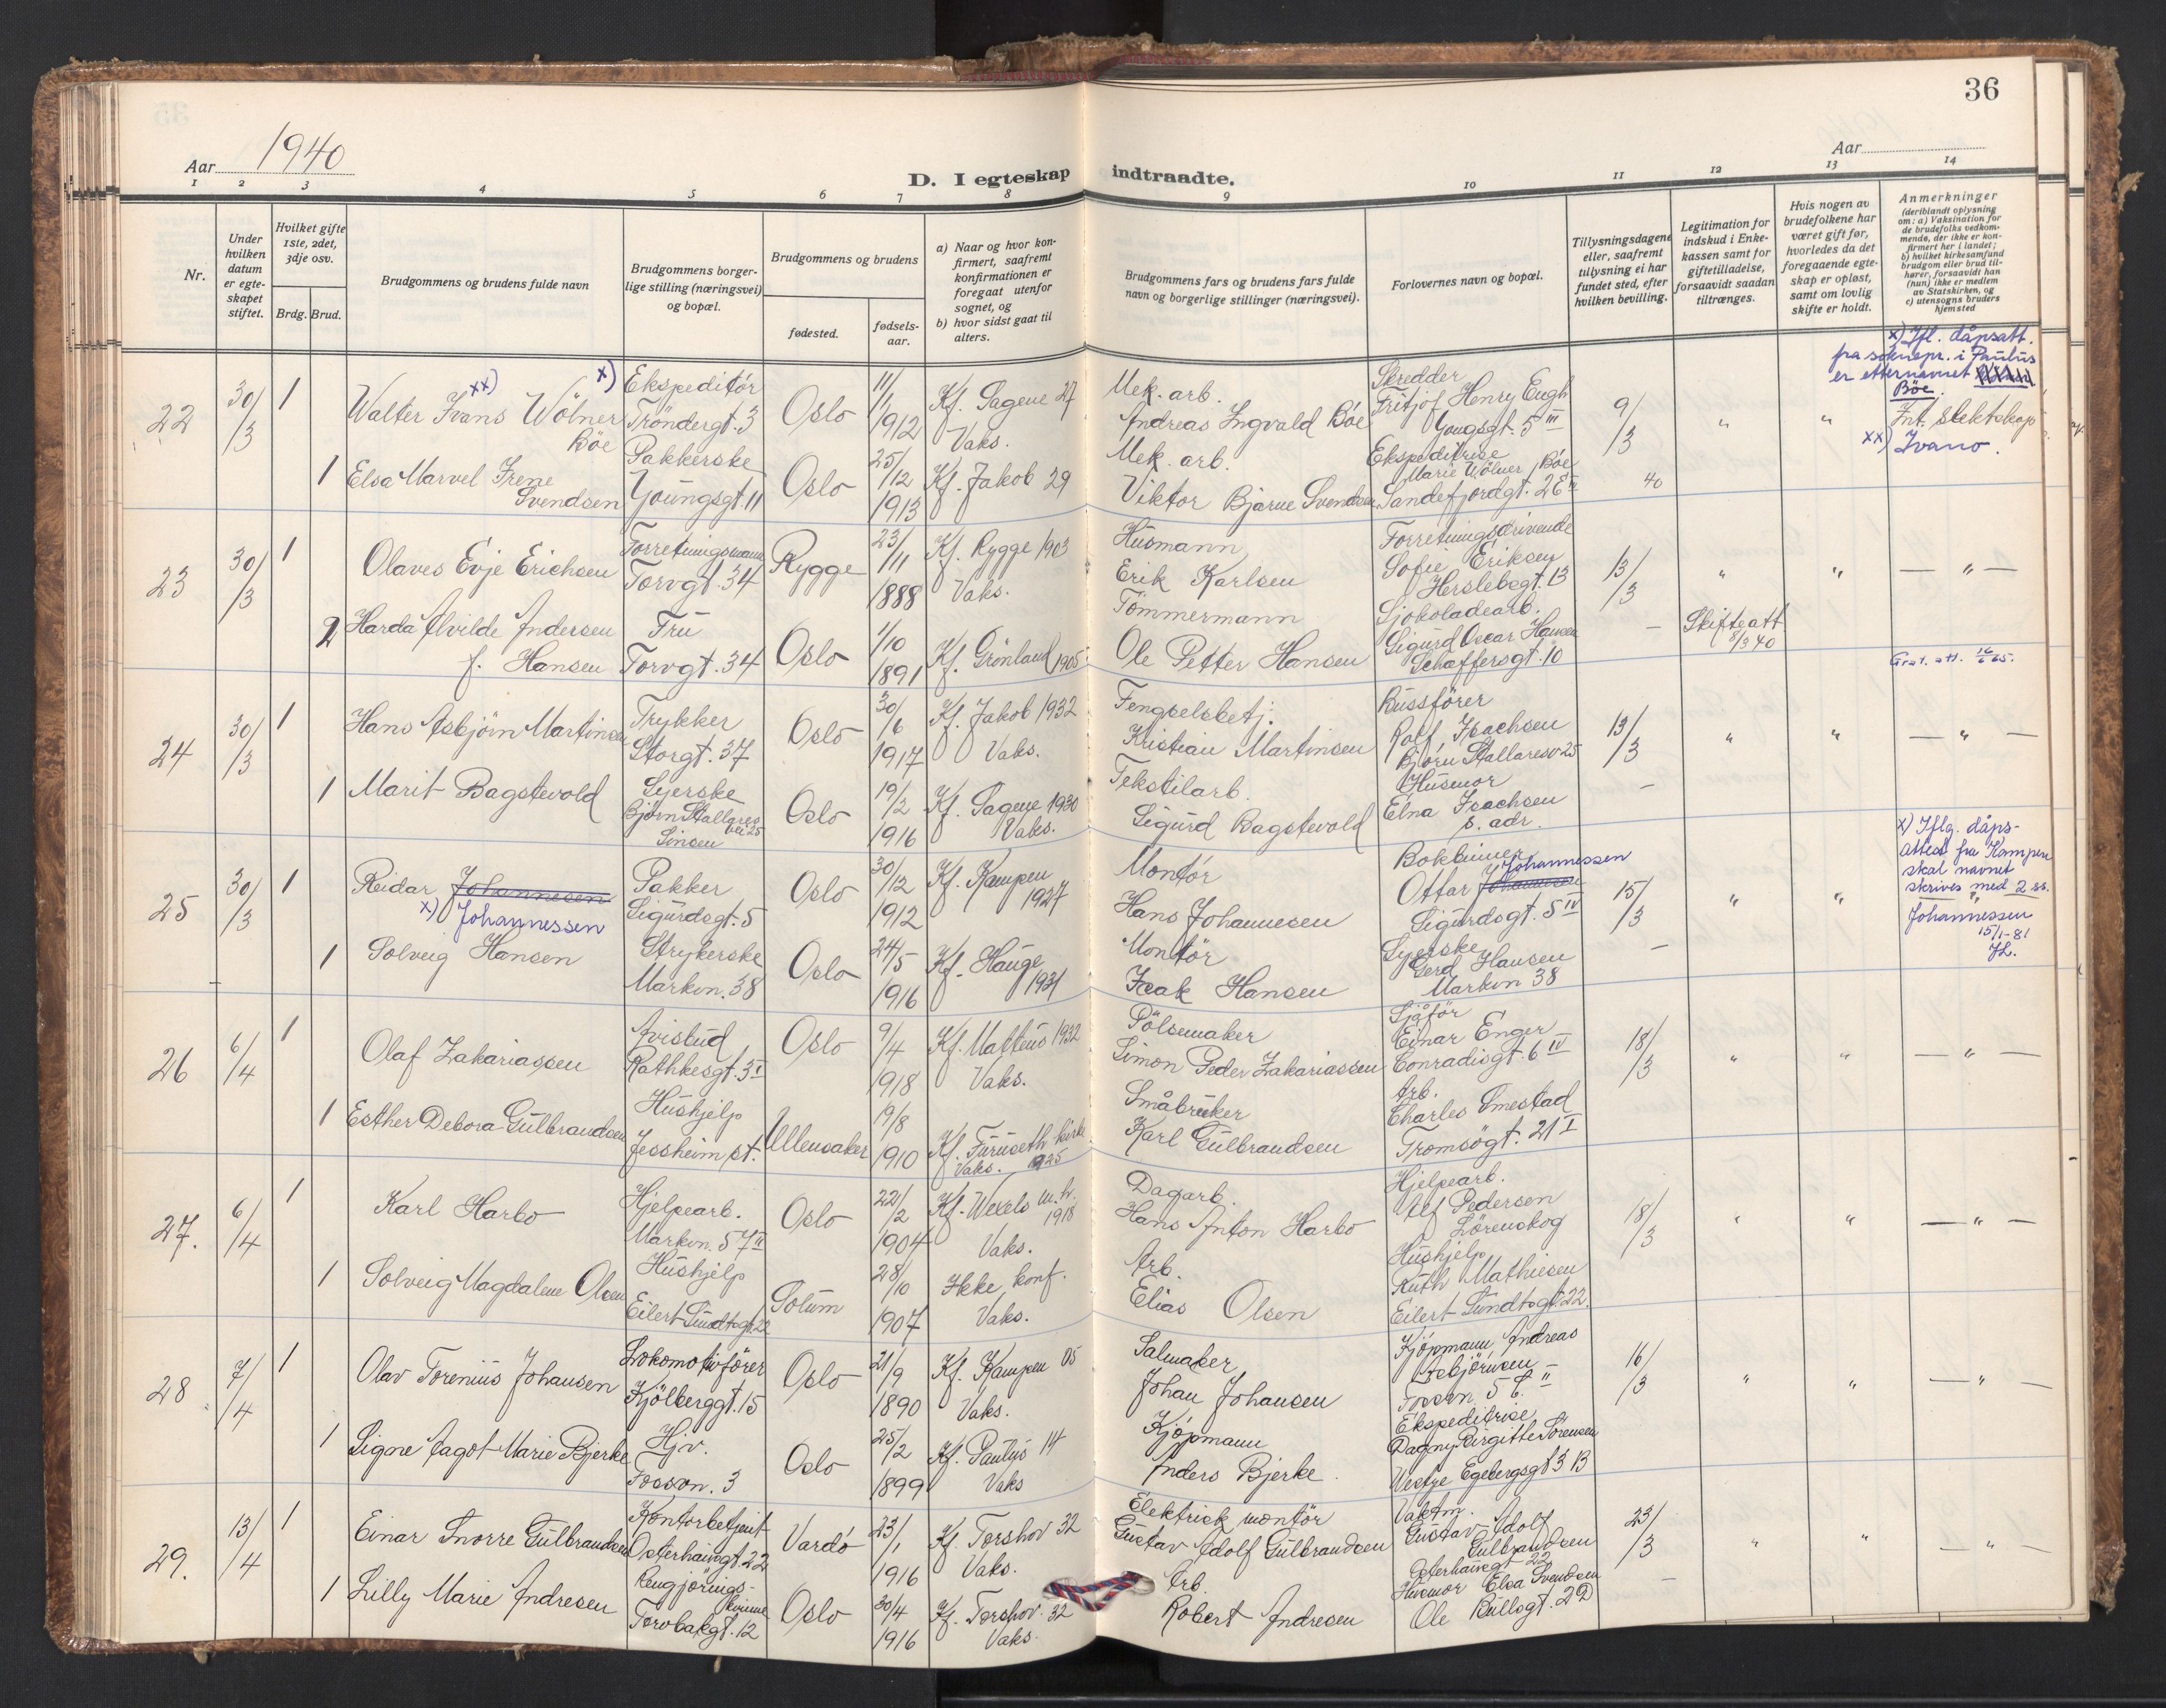 36
Aar 1940
Aar
D. I egteskap indtraadte.
1 2 3 4 5 6 7 8 9 10 11 12 13 14
Nr.
Under hvilken datum er egteskapet stiftet.
Hvilket gifte 1ste, 2det, 3dje osv.
Brdg. Brud.
Brudgommens og brudens fulde navn
Brudgommens borgerlige stilling (næringsvei) og bopæl.
Brudgommens og brudens
fødested.
fødselsaar.
a) Naar og hvor konfirmert, saafremt konfirmationen er foregaat utenfor sognet, og
b) hvor sidst gaat til alters.
Brudgommens fars og brudens fars fulde navn og borgerlige stillinger (næringsvei).
Forlovernes navn og bopæl.
Tillysningsdagene eller, saafremt tillysning ei har fundet sted, efter hvilken bevilling.
Legitimation for indskud i Enkekassen samt for giftetilladelse, forsaavidt saadan tiltrænges.
Hvis nogen av brudefolkene har været gift før, hvorledes da det foregaaende egteskap er opløst, samt om lovlig skifte er holdt.
Anmerkninger
(deriblandt oplysning om: a) Vaksination for de brudefolks vedkommende, der ikke er konfirmert her i landet; b) hvilket kirkesamfund brudgom eller brud tilhører, forsaavidt han (hun) ikke er medlem av Statskirken, og c) utensogns bruders hjemsted
22 30/3 1 Walter Ivans xx) Wölner x) Böe
Ekspeditör Tröndergt. 3
Oslo 11/1 1912 Kf. Sagene 27 Vaks.
Mek. arb. Andreas Ingvald Böe
Skredder Fritjof Henry Eugh Youngsgt. 5 III
9/3 40 " "
x) Ifl. dåpsatt. fra soknepr. i Paulus er etternavnet Böe.
Int. slektskap
xx) Ivano.
1 Elsa Marvel Irene Svendsen
Youngsgt. 11 Pakkerske
Oslo 25/12 1913 Kf. Jakob 29
Mek. arb. Viktor Bjarne Svendsen
Ekspeditrise Marie Wölner Böe Sandefjordgt. 2 E IV
23 30/3 1 Olaves Evje Erichsen
Forretningsmann Torvgt. 34
Rygge 23/11 1888 Kf. Rygge 1903 Vaks.
Husmann Erik Karlsen
Forretningsdrivende Sofie Eriksen Herslebsgt. 13
13/3 " " — " —
2 Harda Alvilde Andersen f. Hansen
Fru Torvgt. 34
Oslo 1/10 1891 Kf. Grönland 1905
Tömmermann Ole Petter Hansen
Sjokoladearb. Sigurd Oscar Hansen Schaffersgt. 10
— Skifteatt 8/3 40
Grat. att. 16/6 65.
24 30/3 1 Hans Asbjörn Martinsen
Trykker Storgt. 37
Oslo 30/6 1917 Kf. Jakob 1932 Vaks.
Fengselsbetj. Kristian Martinsen
Bussförer Rolf Isachsen Björn Stallaresv 25
13/3 " " — " —
1 Marit Bagstevold
Syerske Björn Stallares vei 25 Sinsen
Oslo 19/2 1916 Kf. Sagene 1930 Vaks.
Tekstilarb. Sigurd Bagstevold
Husmor Elna Isachsen s. adr.
—
25 30/3 1 Reidar Johannesen x) Johannessen
Pakker Sigurdsgt. 5
Oslo 30/12 1912 Kf. Kampen 1927
Montör Hans Johannesen
Bokbinner Ottar Johannesen Johannessen Sigurdsgt. 5 IV
15/3 " "
x) Iflg. dåpsattest fra Kampen skal navnet skrives med 2 ss. Johannessen 15/1-81
1 Solveig Hansen
Strykerske Markvn. 38
Oslo 24/5 1916 Kf. Hauge 1931
Montör Isak Hansen
Syerske Gerd Hansen Markvn 38
—
26 6/4 1 Olaf Zakariassen
Avisbud Rathkesgt. 3 I
Oslo 9/4 1918 Kf. Matteus 1932 Vaks.
Pölsemaker Simon Peder Zakariassen
Sjåför Einar Enger Conradisgt. 6 IV
18/3 " " — " —
1 Esther Debora Gulbrandsen
Hushjelp Jessheim st.
Ullensaker 19/8 1910 Kf. Furuseth kirke Vaks. 1925
Småbruker Karl Gulbrandsen
Arb. Charles Smestad Tromsögt. 21 I
27. 6/4 1 Karl Harbo
Hjelpearb. Markvn. 57 IV
Oslo 22/2 1904 Kf. Wexels m.h. 1918 Vaks.
Dagarb. Hans Anton Harbo
Hjelpearb. Alf Pedersen Lörenskog
18/3 " " — " —
1 Solveig Magdalene Olsen
Hushjelp Eilert Sundtsgt. 22
Solum 28/10 1907 Ikke konf. Vaks.
Arb. Elias Olsen
Hushjelp Ruth Mathiesen Eilert Sundtsgt. 22.
28 7/4 1 Olav Torenius Johansen
Lokomotivförer Kjölberggt. 15
Oslo 21/9 1890 Kf. Kampen 05 Vaks.
Salmaker Johan Johansen
Kjöpmann Andreas Asbjörnsen Fossvn. 5 b. II
16/3 " " — " —
1 Signe Aagot Marie Bjerke
Hjv. Fossvn. 3
Oslo 25/2 1899 Kf. Paulus 14 Vaks
Kjöpmann Anders Bjerke.
Ekspeditrise Dagny Birgitte Sörensen Westye Egebergsgt 3 B
29. 13/4 1 Einar Snorre Gulbrandsen
Kontorbetjent Osterhausgt. 22
Vardö 23/1 1916 Kf. Torshov 32 Vaks.
Elektrisk montör Gustav Adolf Gulbrandsen
Vaktm. Gustav Adolf Gulbrandsen Osterhausgt 22
23/3 " " — " —
1 Lilly Marie Andresen
Rengjöringskvinne Torvbakgt. 12
Oslo 30/4 1916 Kf. Torshov 32 Vaks.
Arb. Robert Andresen
Husmor Elsa Svendsen Ole Bullsgt. 22
—